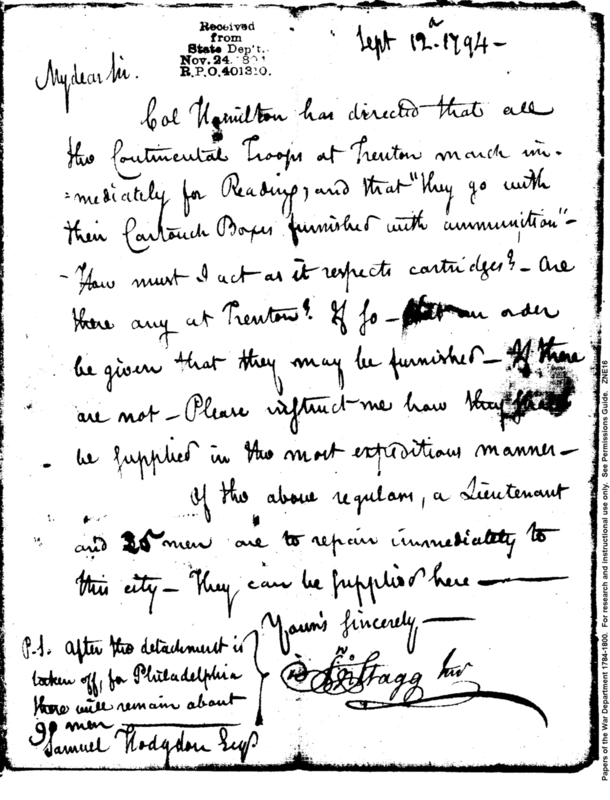 Received
from
State Dep't.
Nov. 24. 1894
R.P.O. 401310.
Sept 12.th 1794 –
My dear Sir.
Col Hamilton has directed that all
the Continental Troops at Trenton march im-
=mediately for Reading, and that "they go with
their Cartouch Boxes furnished with ammunition" –
– How must I act as it respects cartridges? – Are
there any at Trenton? If so – an order
be given that they may be furnished – If there
are not – Please instruct me how they shall
be supplied in the most expeditious manner –
Of the above regulars, a Lieutenant
and 35 men are to repair immediately to
this city – They can be supplied here –
Yours sincerely –
Jn Stagg Jnr
P.S. After the detachment is
taken off, for Philadelphia
there will remain about
90 men
Samuel Hodgdon Esqr
Papers of the War Department 1784-1800. For research and instructional use only. See Permissions Guide. ZNE16